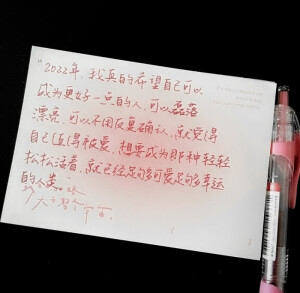 "2022年，我真的希望自己可以
成为更好一点的人，可以磊落
漂亮，可以不用反复确认，就觉得
自己值得被爱，想要成为那种轻轻
松松活着，就已经足够可爱足够幸运
的人类